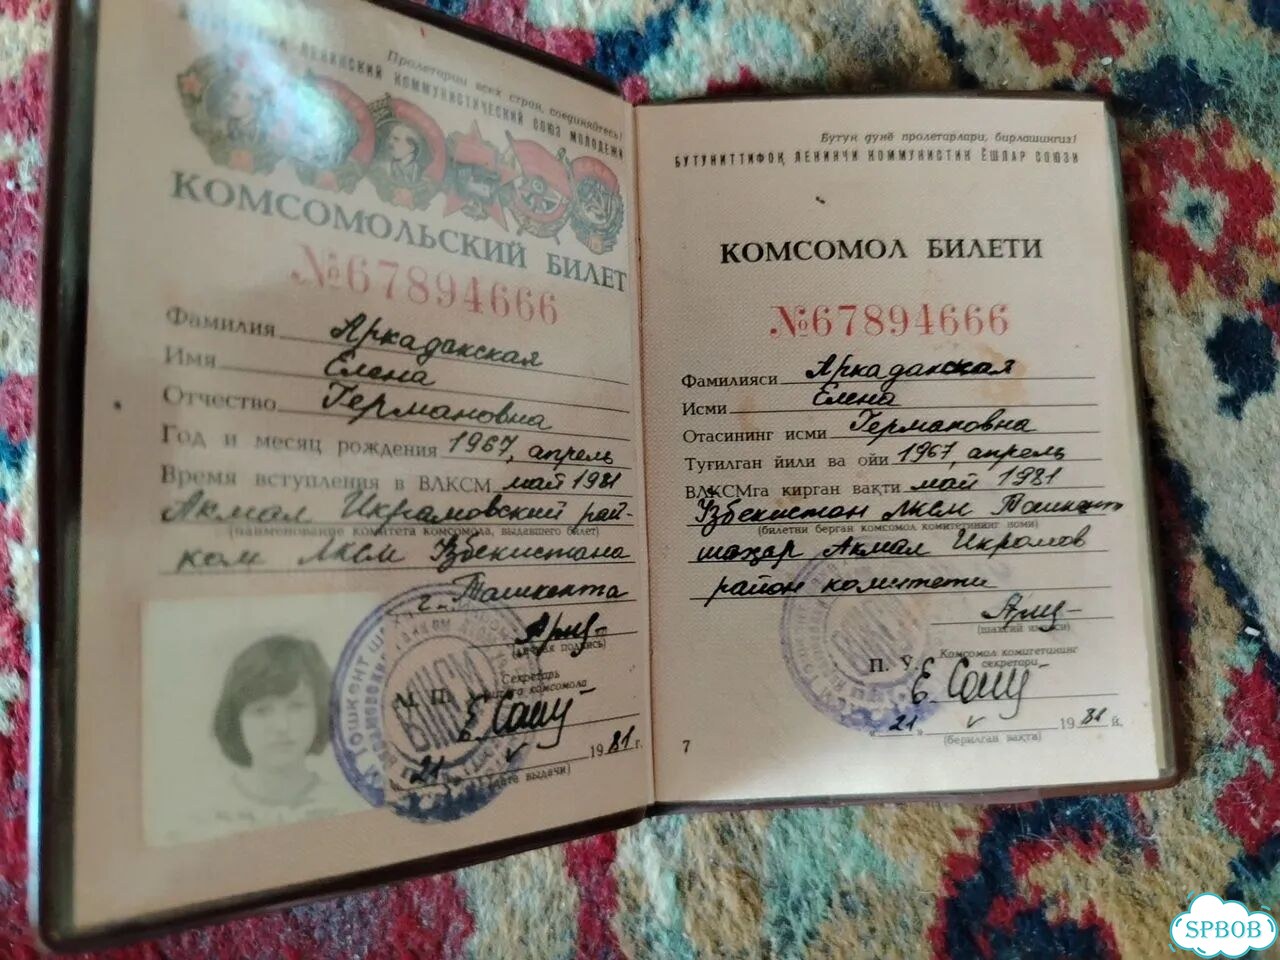 Пролетарии всех стран, соединяйтесь!
ЛЕНИНСКИЙ КОММУНИСТИЧЕСКИЙ СОЮЗ МОЛОДЕЖИ
КОМСОМОЛЬСКИЙ БИЛЕТ
№67894666
Фамилия Аркаданская
Имя Елена
Отчество Германовна
Год и месяц рождения 1967, апрель
Время вступления в ВЛКСМ май 1981
Акмал Икрамовский рай-
(наименование комитета комсомола, выдавшего билет)
ком ЛКСМ Узбекистана
г. Ташкента
(личная подпись)
М. П.
Секретарь
комитета комсомола
21 V 1981 г.
(дата выдачи)
Бутун дунё пролетарлари, бирлашингиз!
БУТУНИТТИФОҚ ЛЕНИНЧИ КОММУНИСТИК ЁШЛАР СОЮЗИ
КОМСОМОЛ БИЛЕТИ
№67894666
Фамилияси Аркаданская
Исми Елена
Отасининг исми Германовна
Туғилган йили ва ойи 1967, апрель
ВЛКСМга кирган вақти май 1981
Ўзбекистон ЛКСМ Тошкент
(билетни берган комсомол комитетининг номи)
шаҳар Акмал Икромов
район комитети
(шахсий имзоси)
П. Ў.
Комсомол комитетининг
секретари
„21" V 1981 й.
(берилган вақти)
7
SPBOB